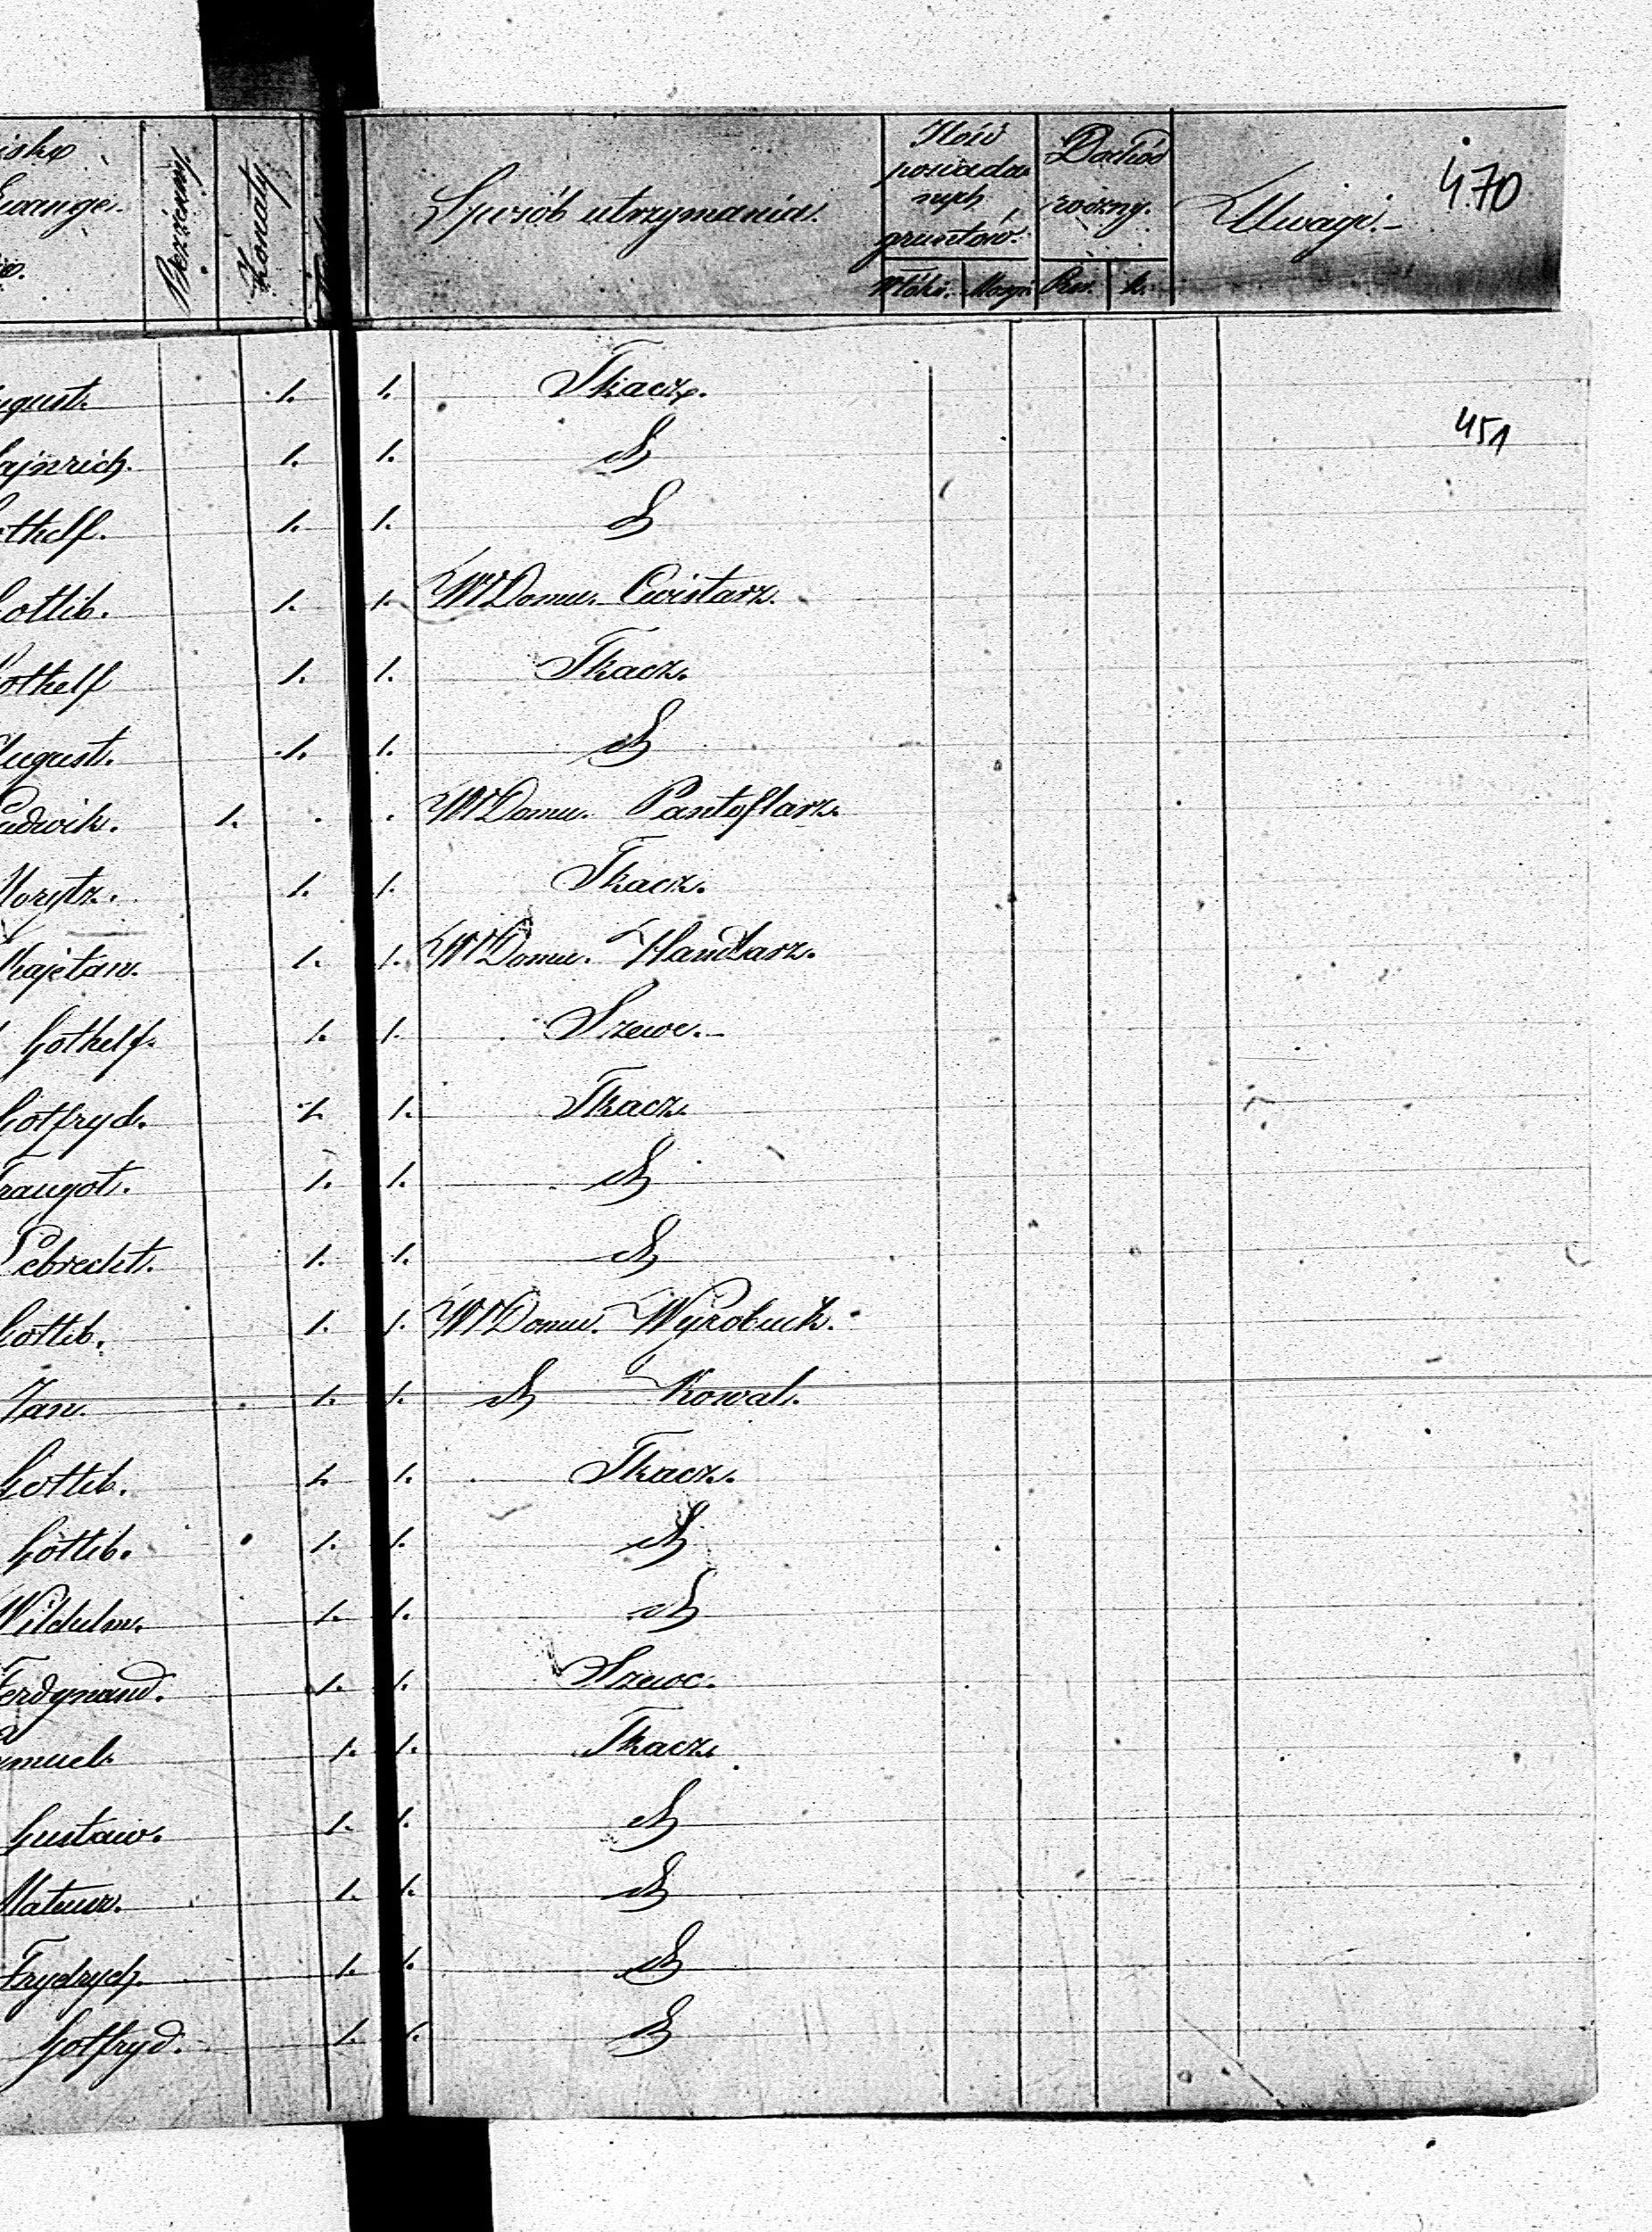 Bezżenny. Żonaty Sposób utrzymania. Ilość posiadanych gruntów. Dochód roczny. Uwagi.- 470
Włók. Morgi Rsr. k.
ugust. 1. 1. Tkacz.
451
ajnrich. 1. 1. d
othelf. 1. 1. d
ottlib. 1. 1. W Domu. Cwistarz.
othelf 1. 1. Tkacz.
August. 1. 1. d
Ludwik. 1. . . W Domu. Pantoflarz.
Morytz. 1. 1. Tkacz.
Kajetan. 1. 1. W Domu. Handlarz.
Gothelf. 1. 1. Szewc.-
Gotfryd. 1. 1. Tkacz.
Traugot. 1. 1. d
Lebrecht. 1. 1. d
Gottlib. 1. 1. W Domu. Wyrobnik.
Jan. 1. 1. d Kowal.
Gottlib. 1. 1. Tkacz.
Gottlib. 1. 1. d
Wilchelm. 1. 1. d
Ferdynand. 1. 1. Szewc.
amuel 1. 1. Tkacz.
Gustaw. 1. 1. d
Mateusz. 1. 1. d
Frydrych. 1. 1. d
Gotfryd. 1. 1. d